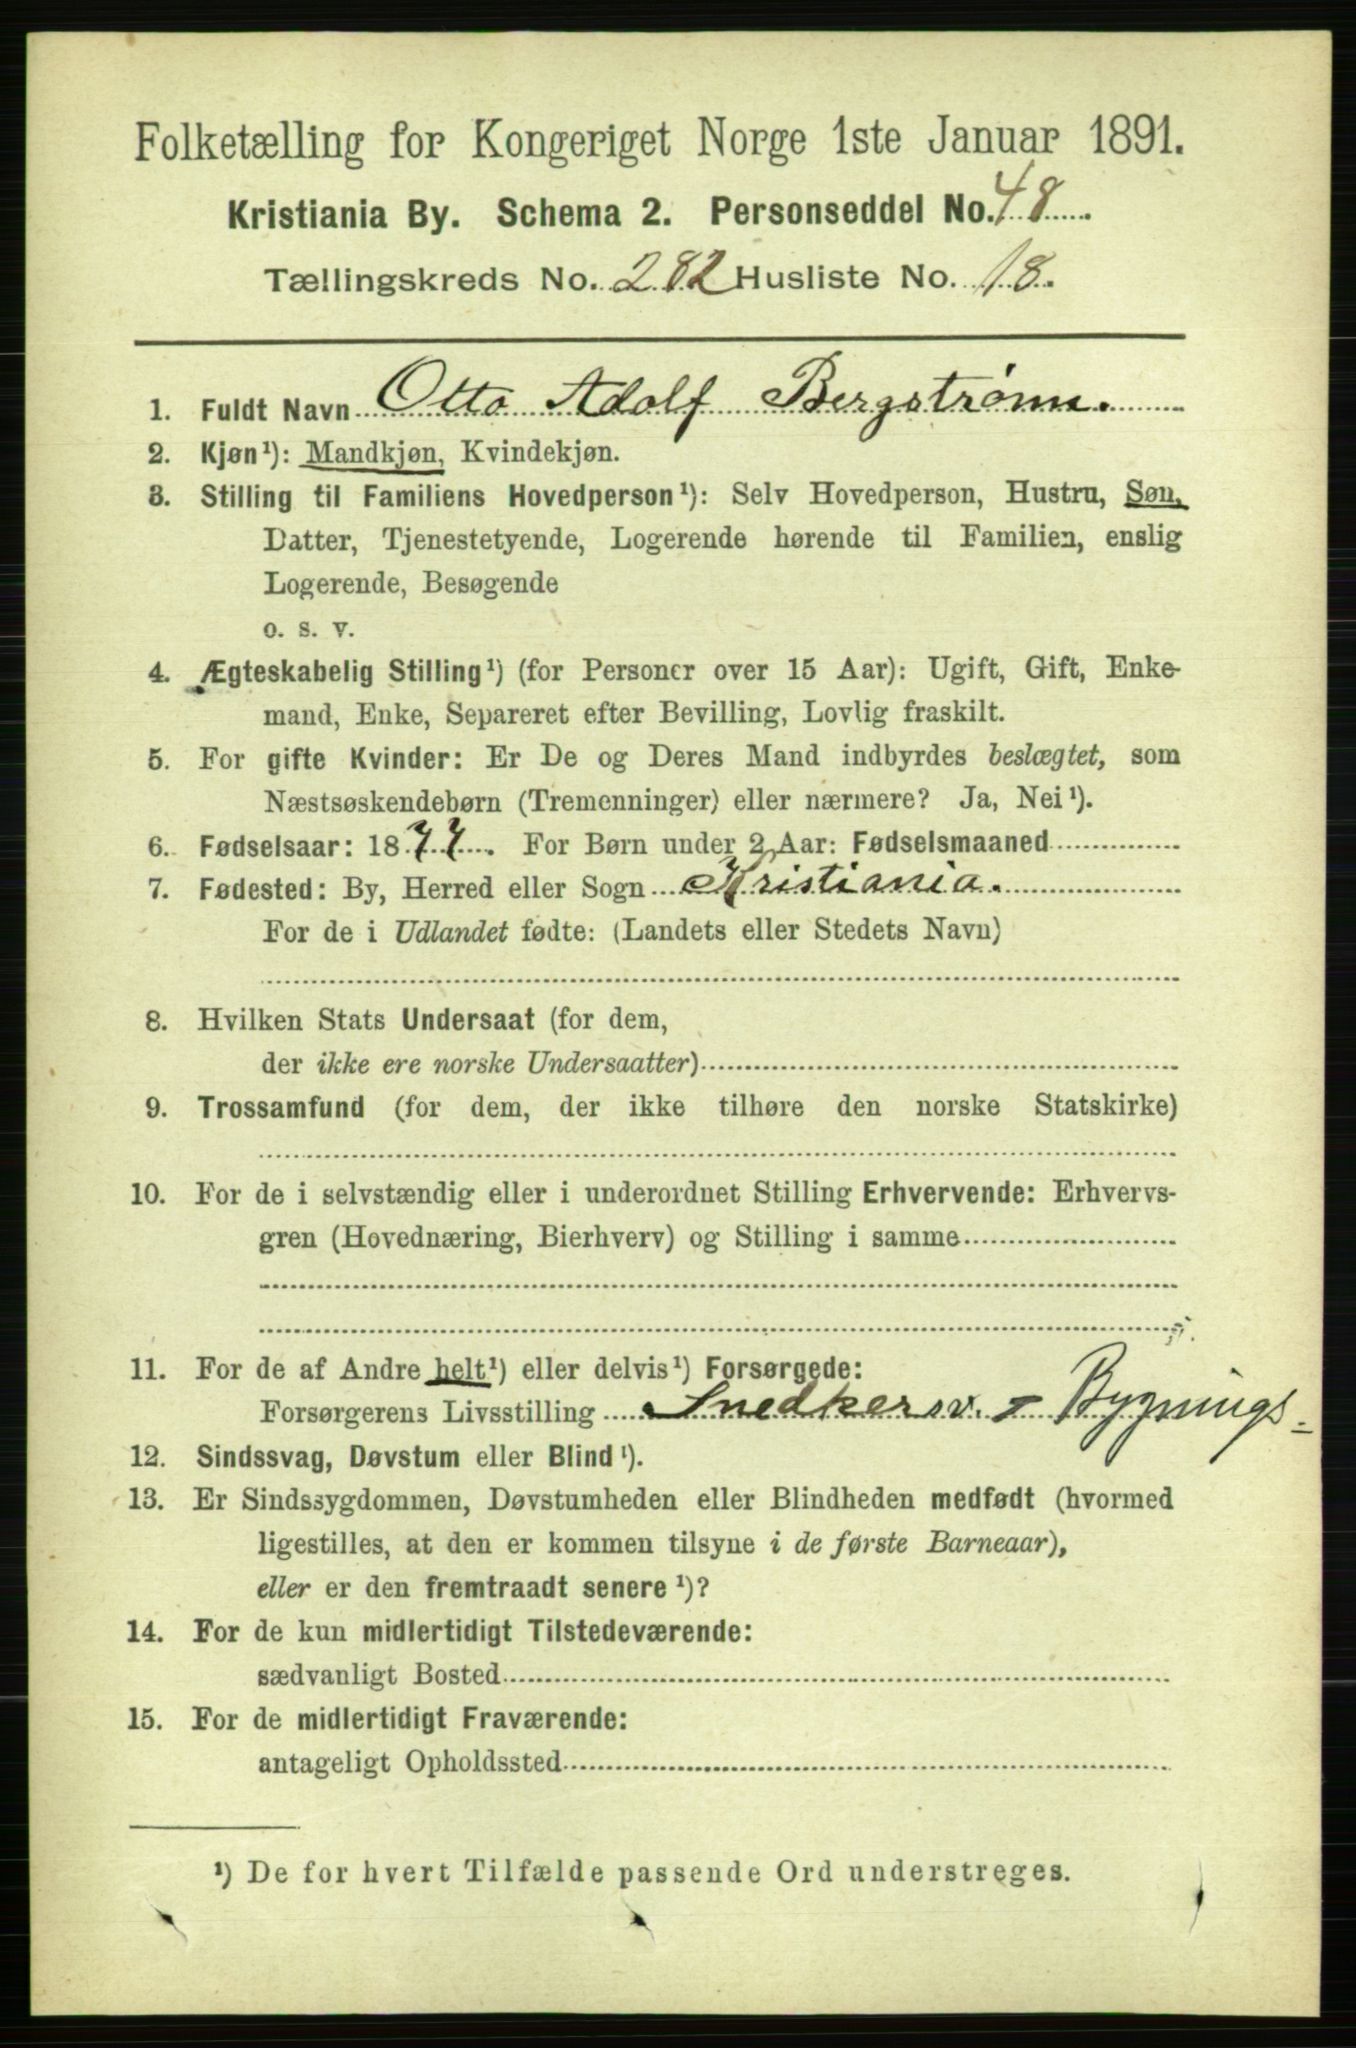 Folketælling for Kongeriget Norge 1ste Januar 1891.
Kristiania By. Schema 2. Personseddel No. 48
Tællingskreds No. 282 Husliste No. 18.
1. Fuldt Navn Otto Adolf Bergstrøm.
2. Kjøn¹): Mandkjøn, Kvindekjøn.
3. Stilling til Familiens Hovedperson¹): Selv Hovedperson, Hustru, Søn,
Datter, Tjenestetyende, Logerende hørende til Familien, enslig
Logerende, Besøgende
o. s. v.
4. Ægteskabelig Stilling¹) (for Personer over 15 Aar): Ugift, Gift, Enke-
mand, Enke, Separeret efter Bevilling, Lovlig fraskilt.
5. For gifte Kvinder: Er De og Deres Mand indbyrdes beslægtet, som
Næstsøskendebørn (Tremenninger) eller nærmere? Ja, Nei¹).
6. Fødselsaar: 1877. For Børn under 2 Aar: Fødselsmaaned
7. Fødested: By, Herred eller Sogn Kristiania.
For de i Udlandet fødte: (Landets eller Stedets Navn)
8. Hvilken Stats Undersaat (for dem,
der ikke ere norske Undersaatter)
9. Trossamfund (for dem, der ikke tilhøre den norske Statskirke)
10. For de i selvstændig eller i underordnet Stilling Erhvervende: Erhvervs-
gren (Hovednæring, Bierhverv) og Stilling i samme
11. For de af Andre helt¹) eller delvis¹) Forsørgede:
Forsørgerens Livsstilling Snedkersv. - Bygnings-
12. Sindssvag, Døvstum eller Blind¹).
13. Er Sindssygdommen, Døvstumheden eller Blindheden medfødt (hvormed
ligestilles, at den er kommen tilsyne i de første Barneaar),
eller er den fremtraadt senere¹)?
14. For de kun midlertidigt Tilstedeværende:
sædvanligt Bosted
15. For de midlertidigt Fraværende:
antageligt Opholdssted
¹) De for hvert Tilfælde passende Ord understreges.